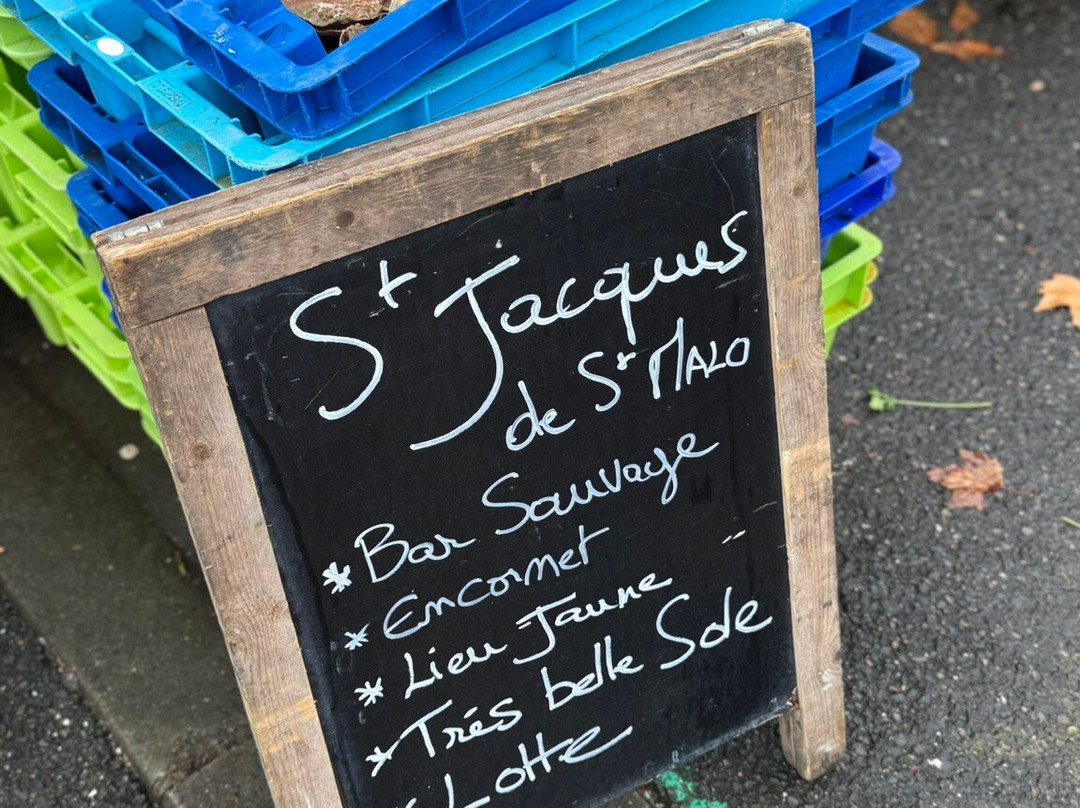 St Jacques
de St MALO
* Bar Sauvage
* Encornet
* Lieu Jaune
* Trés belle Sole
* Lotte